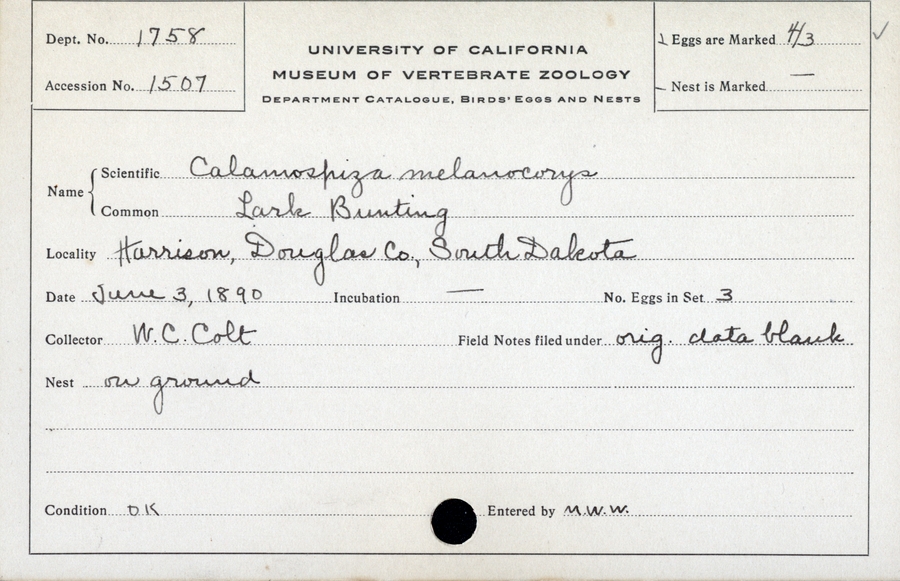 Dept. No. 1758
Accession No. 1507
UNIVERSITY OF CALIFORNIA
MUSEUM OF VERTEBRATE ZOOLOGY
DEPARTMENT CATALOGUE, BIRDS' EGGS AND NESTS
Eggs are Marked 4/3 ✓
Nest is Marked —
Name
Scientific Calamospiza melanocorys
Common Lark Bunting
Locality Harrison, Douglas Co., South Dakota
Date June 3, 1890 Incubation — No. Eggs in Set 3
Collector W.C. Colt Field Notes filed under orig. data blank
Nest on ground
Condition OK Entered by M.W.W.